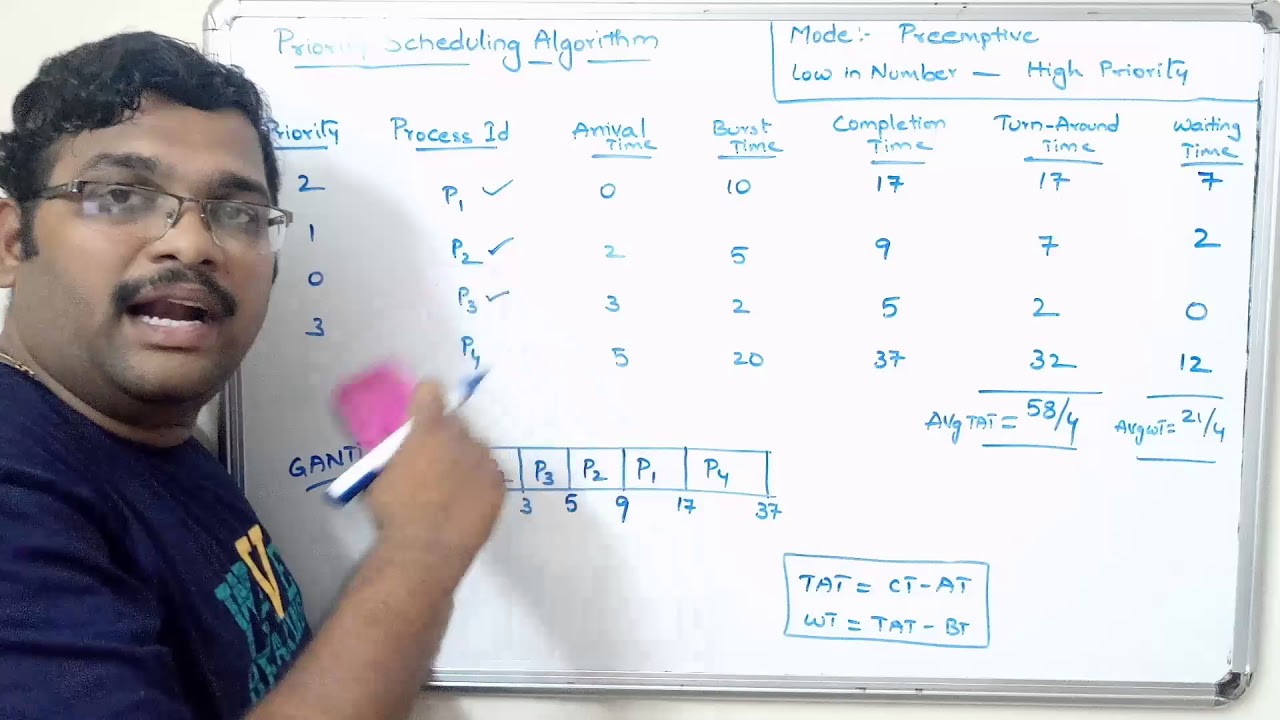 Priority Scheduling Algorithm
Mode:- Preemptive
Low in Number — High Priority
Priority Process Id Arrival Time Burst Time Completion Time Turn-Around Time Waiting Time
2 P1 ✓ 0 10 17 17 7
1 P2 ✓ 2 5 9 7 2
0 P3 ✓ 3 2 5 2 0
3 P4 5 20 37 32 12
Avg TAT = 58/4 Avg WT = 21/4
GANT
P3 P2 P1 P4
3 5 9 17 37
TAT = CT - AT
WT = TAT - BT